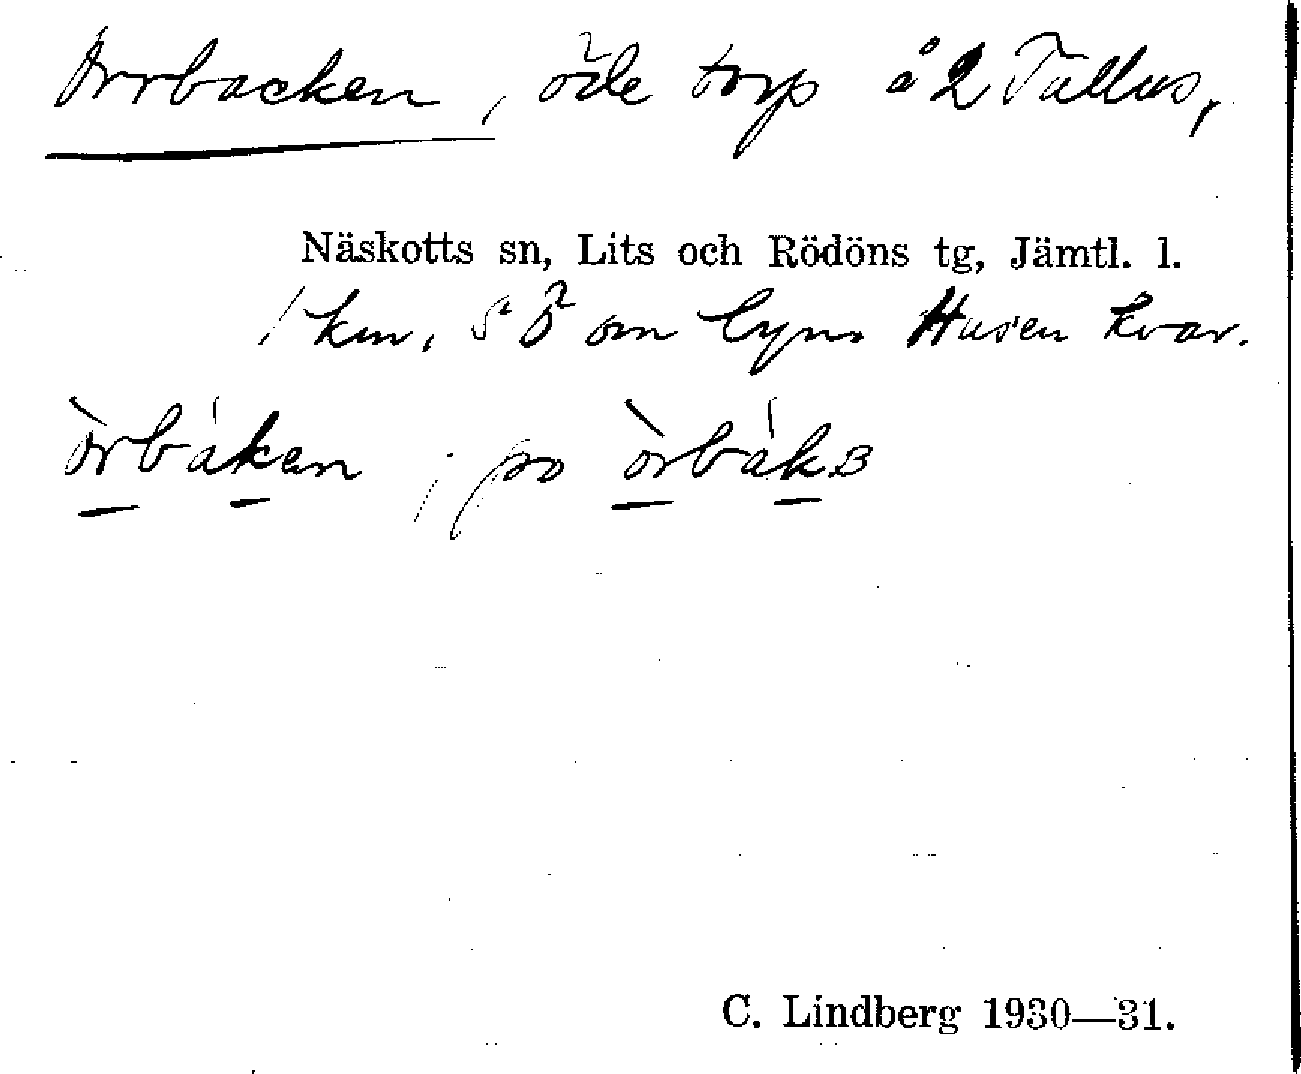 Orrbacken, öde torp å 2 Tullus,
Näskotts sn, Lits och Rödöns tg, Jämtl. l.
1 km. S Ö om byn. Husen kvar.
òrbákan ; po òrbákɜ
C. Lindberg 1930—31.